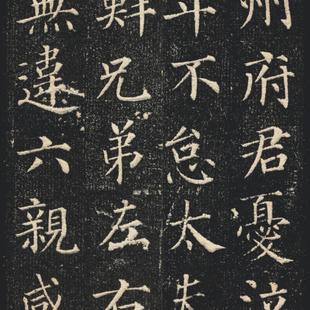 州府君憂泣
年不怠太
鮮兄弟左右
無違六親咸